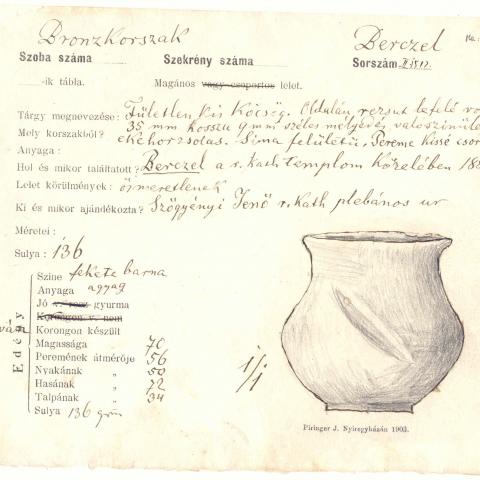 Bronzkorszak
Berczel
Szoba száma
Szekrény száma
Sorszám II
-ik tábla.
Magános vagy csoportos lelet.
Tárgy megnevezése: Fületlen kis Köcsög. Oldalán rézsut lefelé
Mely korszakból? 35 mm hosszu 9 mm széles mélyedés valoszinüle
Anyaga: ekehorzsolas. Sima felületü, Pereme kissé csor
Hol és mikor találtatott? Berczel a r. kath templom közelében 188
Lelet körülmények: ösmeretlenek
Ki és mikor ajándékozta? Szögyényi Jenő r. kath plebános ur
Méretei:
Sulya: 136
Edény
Szine fekete barna
Anyaga agyag
Jó v. rosz gyurma
Korongon v. nem
Korongon készült
Magassága 70
Peremének átmérője 56
Nyakának „ 50
Hasának „ 72
Talpának „ 34
Sulya 136 grm
1/1
Piringer J. Nyiregyházán 1903.